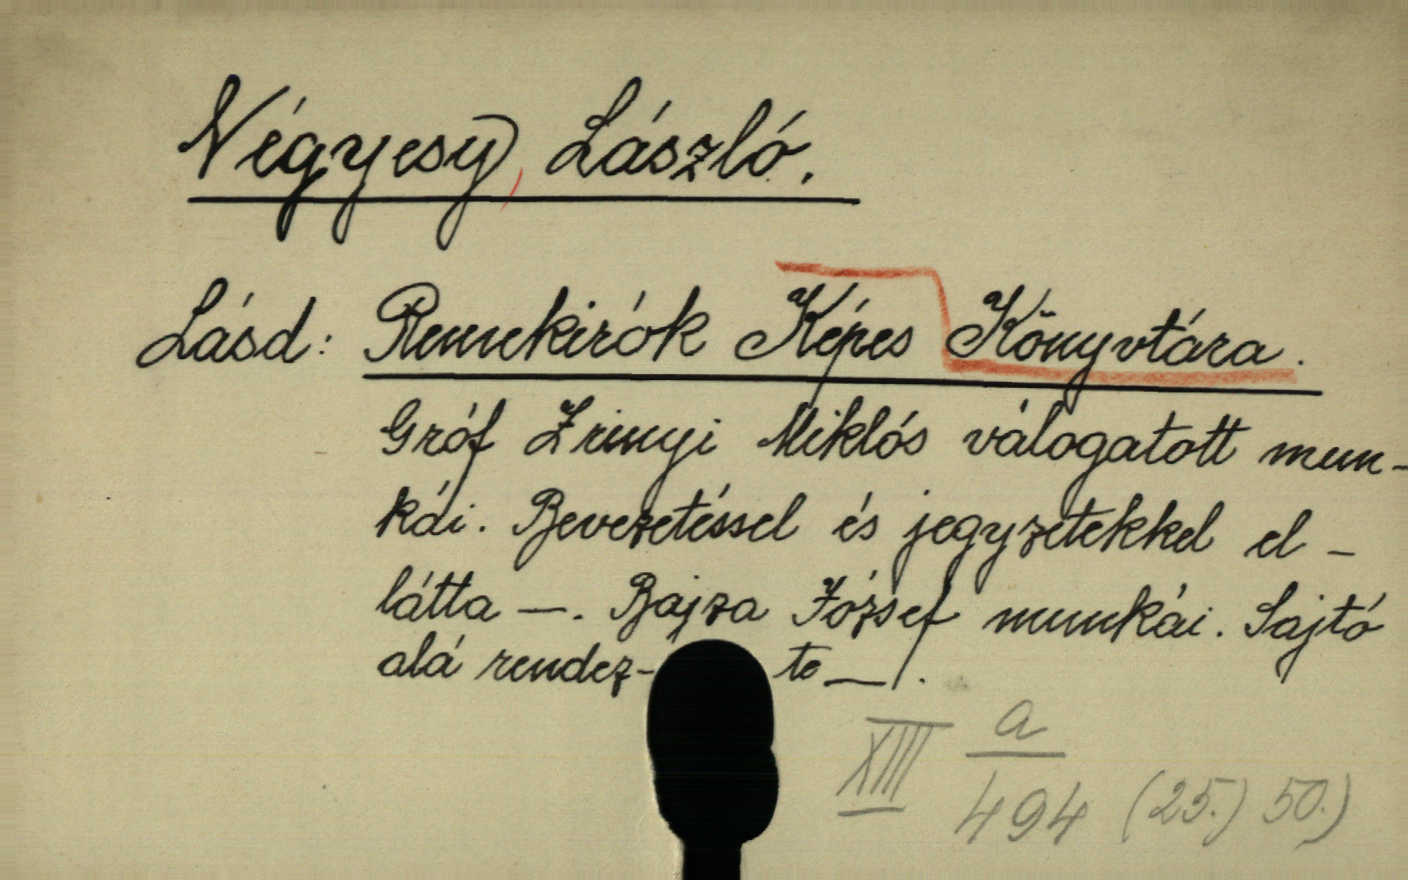 Négyesy, László.
Lásd: Remekirók Képes Könyvtára.
Gróf Zrinyi Miklós válogatott mun-
kái. Bevezetéssel és jegyzetekkel el-
látta —. Bajza József munkái. Sajtó
alá rendez- te —.
XIII a
494 (25.) 50.)